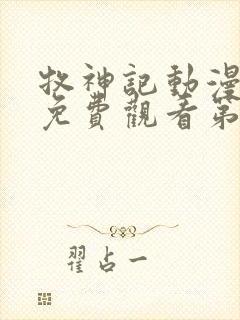 牧神記動漫
免費觀看第
翟占一